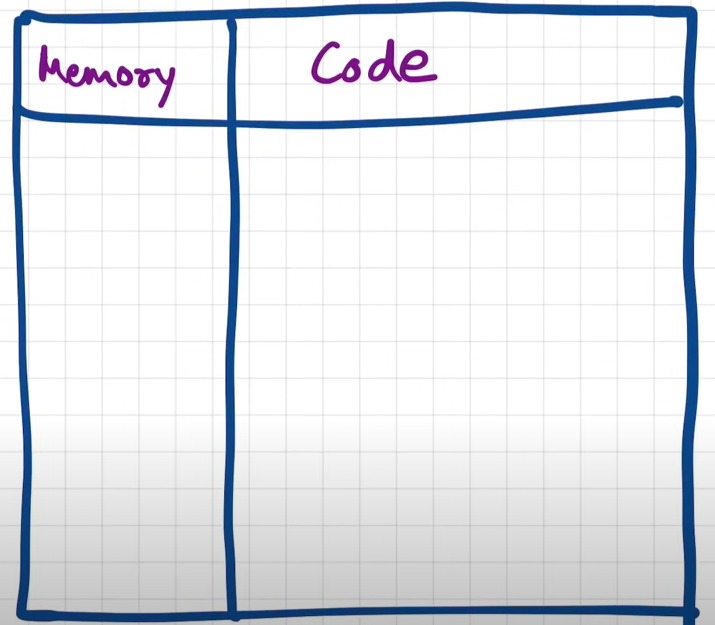 Memory
Code